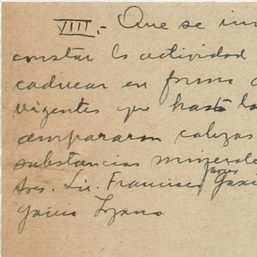 VIII.- Que se in
constar la actividad
caducar en forma
vigentes que hasta la
ampararon cabezas
substancias minerale
Sres. Lic. Francisco Javier Gaxi
Lozano